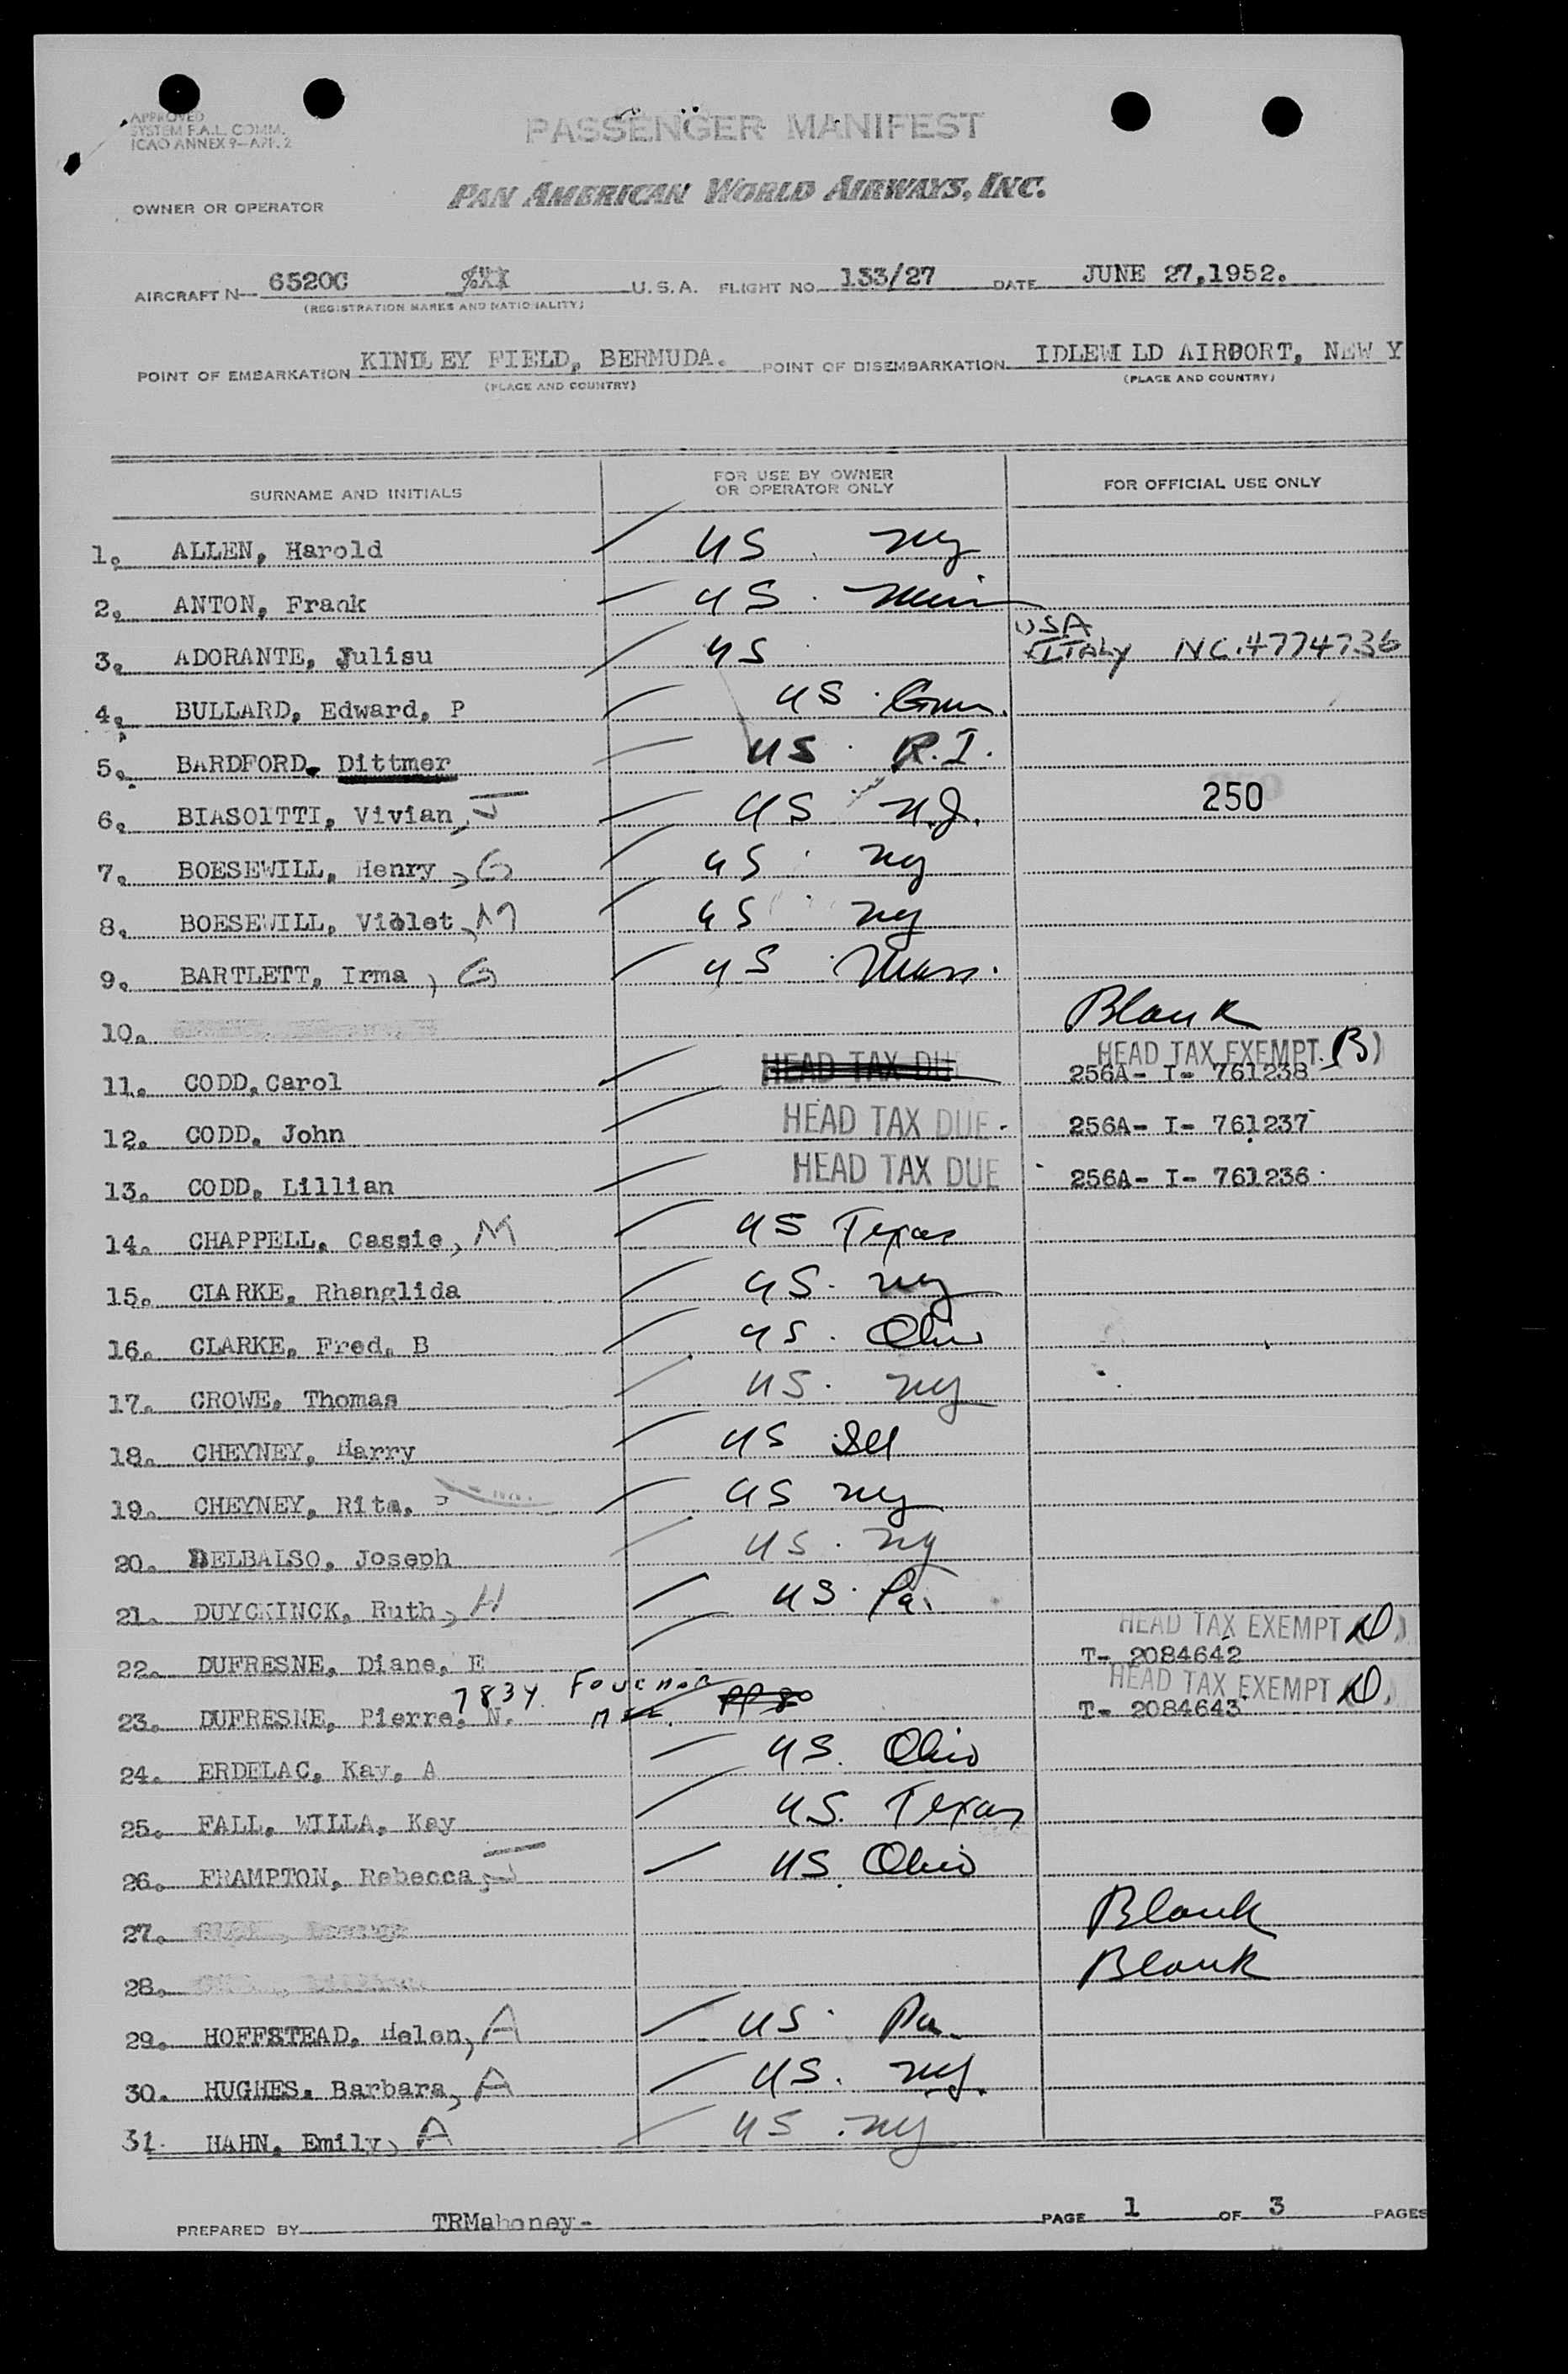 APPROVED
SYSTEM F.A.L. COMM.
ICAO ANNEX 9-APP. 2
PASSENGER MANIFEST
PAN AMERICAN WORLD AIRWAYS, INC.
OWNER OR OPERATOR
AIRCRAFT N 6520C U.S.A. FLIGHT NO. 133/27 DATE JUNE 27,1952.
(REGISTRATION MARKS AND NATIONALITY)
POINT OF EMBARKATION KINDLEY FIELD, BERMUDA. POINT OF DISEMBARKATION IDLEWILD AIRPORT, NEW Y
(PLACE AND COUNTRY) (PLACE AND COUNTRY)
SURNAME AND INITIALS FOR USE BY OWNER OR OPERATOR ONLY FOR OFFICIAL USE ONLY
1. ALLEN, Harold US NY
2. ANTON, Frank US. Minn
3. ADORANTE, Julisu US USA ITALY NC.#774736
4. BULLARD, Edward, P US. Conn.
5. BARDFORD. Dittmer US. R.I.
6. BIASOITTI, Vivian, J US N.J. 250
7. BOESEWILL, Henry, G US NY
8. BOESEWILL, Violet, M US NY
9. BARTLETT, Irma, G US Mass.
10. Blank
11. CODD, Carol HEAD TAX DUE HEAD TAX EXEMPT (B) 256A- I- 761238
12. CODD, John HEAD TAX DUE 256A- I- 761237
13. CODD, Lillian HEAD TAX DUE 256A- I- 761236
14. CHAPPELL, Cassie, M US Texas
15. CLARKE, Rhanglida US. NY
16. CLARKE, Fred, B US. Ohio
17. CROWE, Thomas US. NY
18. CHEYNEY, Harry US Ill
19. CHEYNEY, Rita, US NY
20. DELBALSO, Joseph US. NY
21. DUYCKINCK, Ruth, H US. Pa.
22. DUFRESNE, Diane, E HEAD TAX EXEMPT (D) T- 2084642
23. DUFRESNE, Pierre, N. 7834 HEAD TAX EXEMPT (D) T- 2084643
24. ERDELAC, Kay, A US. Ohio
25. FALL, WILLA, Kay US. Texas
26. FRAMPTON, Rebecca, J US. Ohio
27. Blank
28. Blank
29. HOFFSTEAD, Helen, A US. Pa.
30. HUGHES, Barbara, A US. NY.
31. HAHN, Emily, A US. NY
PREPARED BY TRMahoney- PAGE 1 OF 3 PAGES